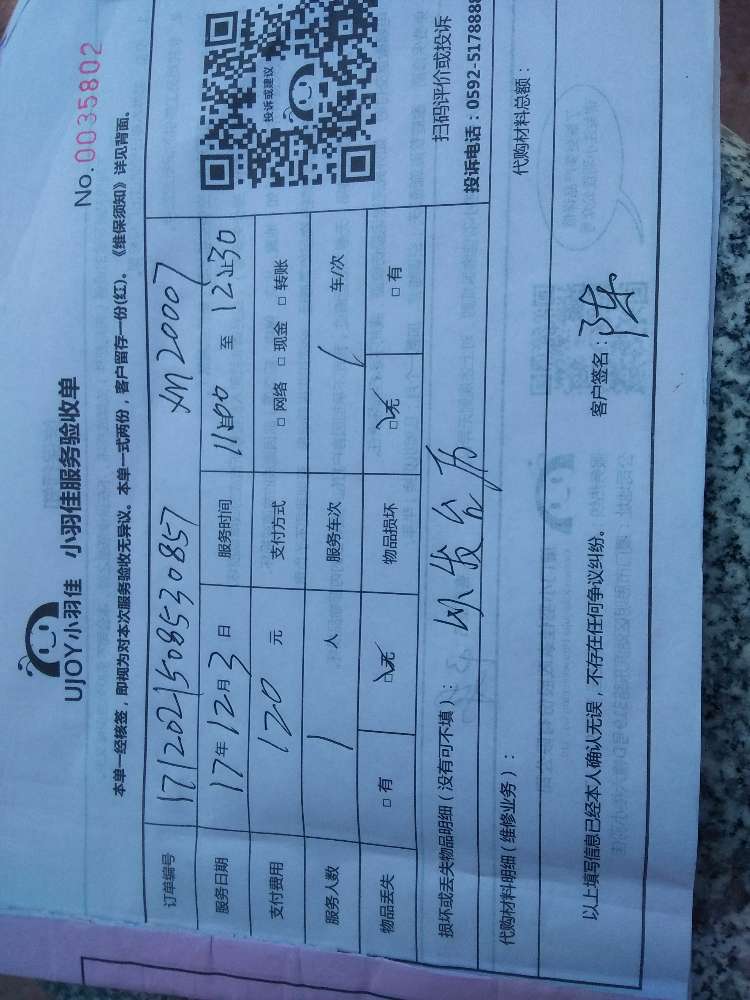 UJOY小羽佳 小羽佳服务验收单
No.0035802
本单一经核签，即视为对本次服务验收无异议。本单一式两份，客户留存一份(红)。《维保须知》详见背面。
订单编号 1712021508530857 XM20007
服务日期 17年12月3日 服务时间 11:00 至 12:30
支付费用 120 元 支付方式 □ 网络 □ 现金 □ 转账
服务人数 1 人 服务车次 车/次
物品丢失 □ 有 □ 无 物品损坏 □ 无 □ 有
投诉或建议
扫码评价或投诉
投诉电话：0592-517888
损坏或丢失物品明细（没有可不填）：
代购材料明细（维修业务）：
代购材料总额：
以上填写信息已经本人确认无误，不存在任何争议纠纷。 客户签名：陈